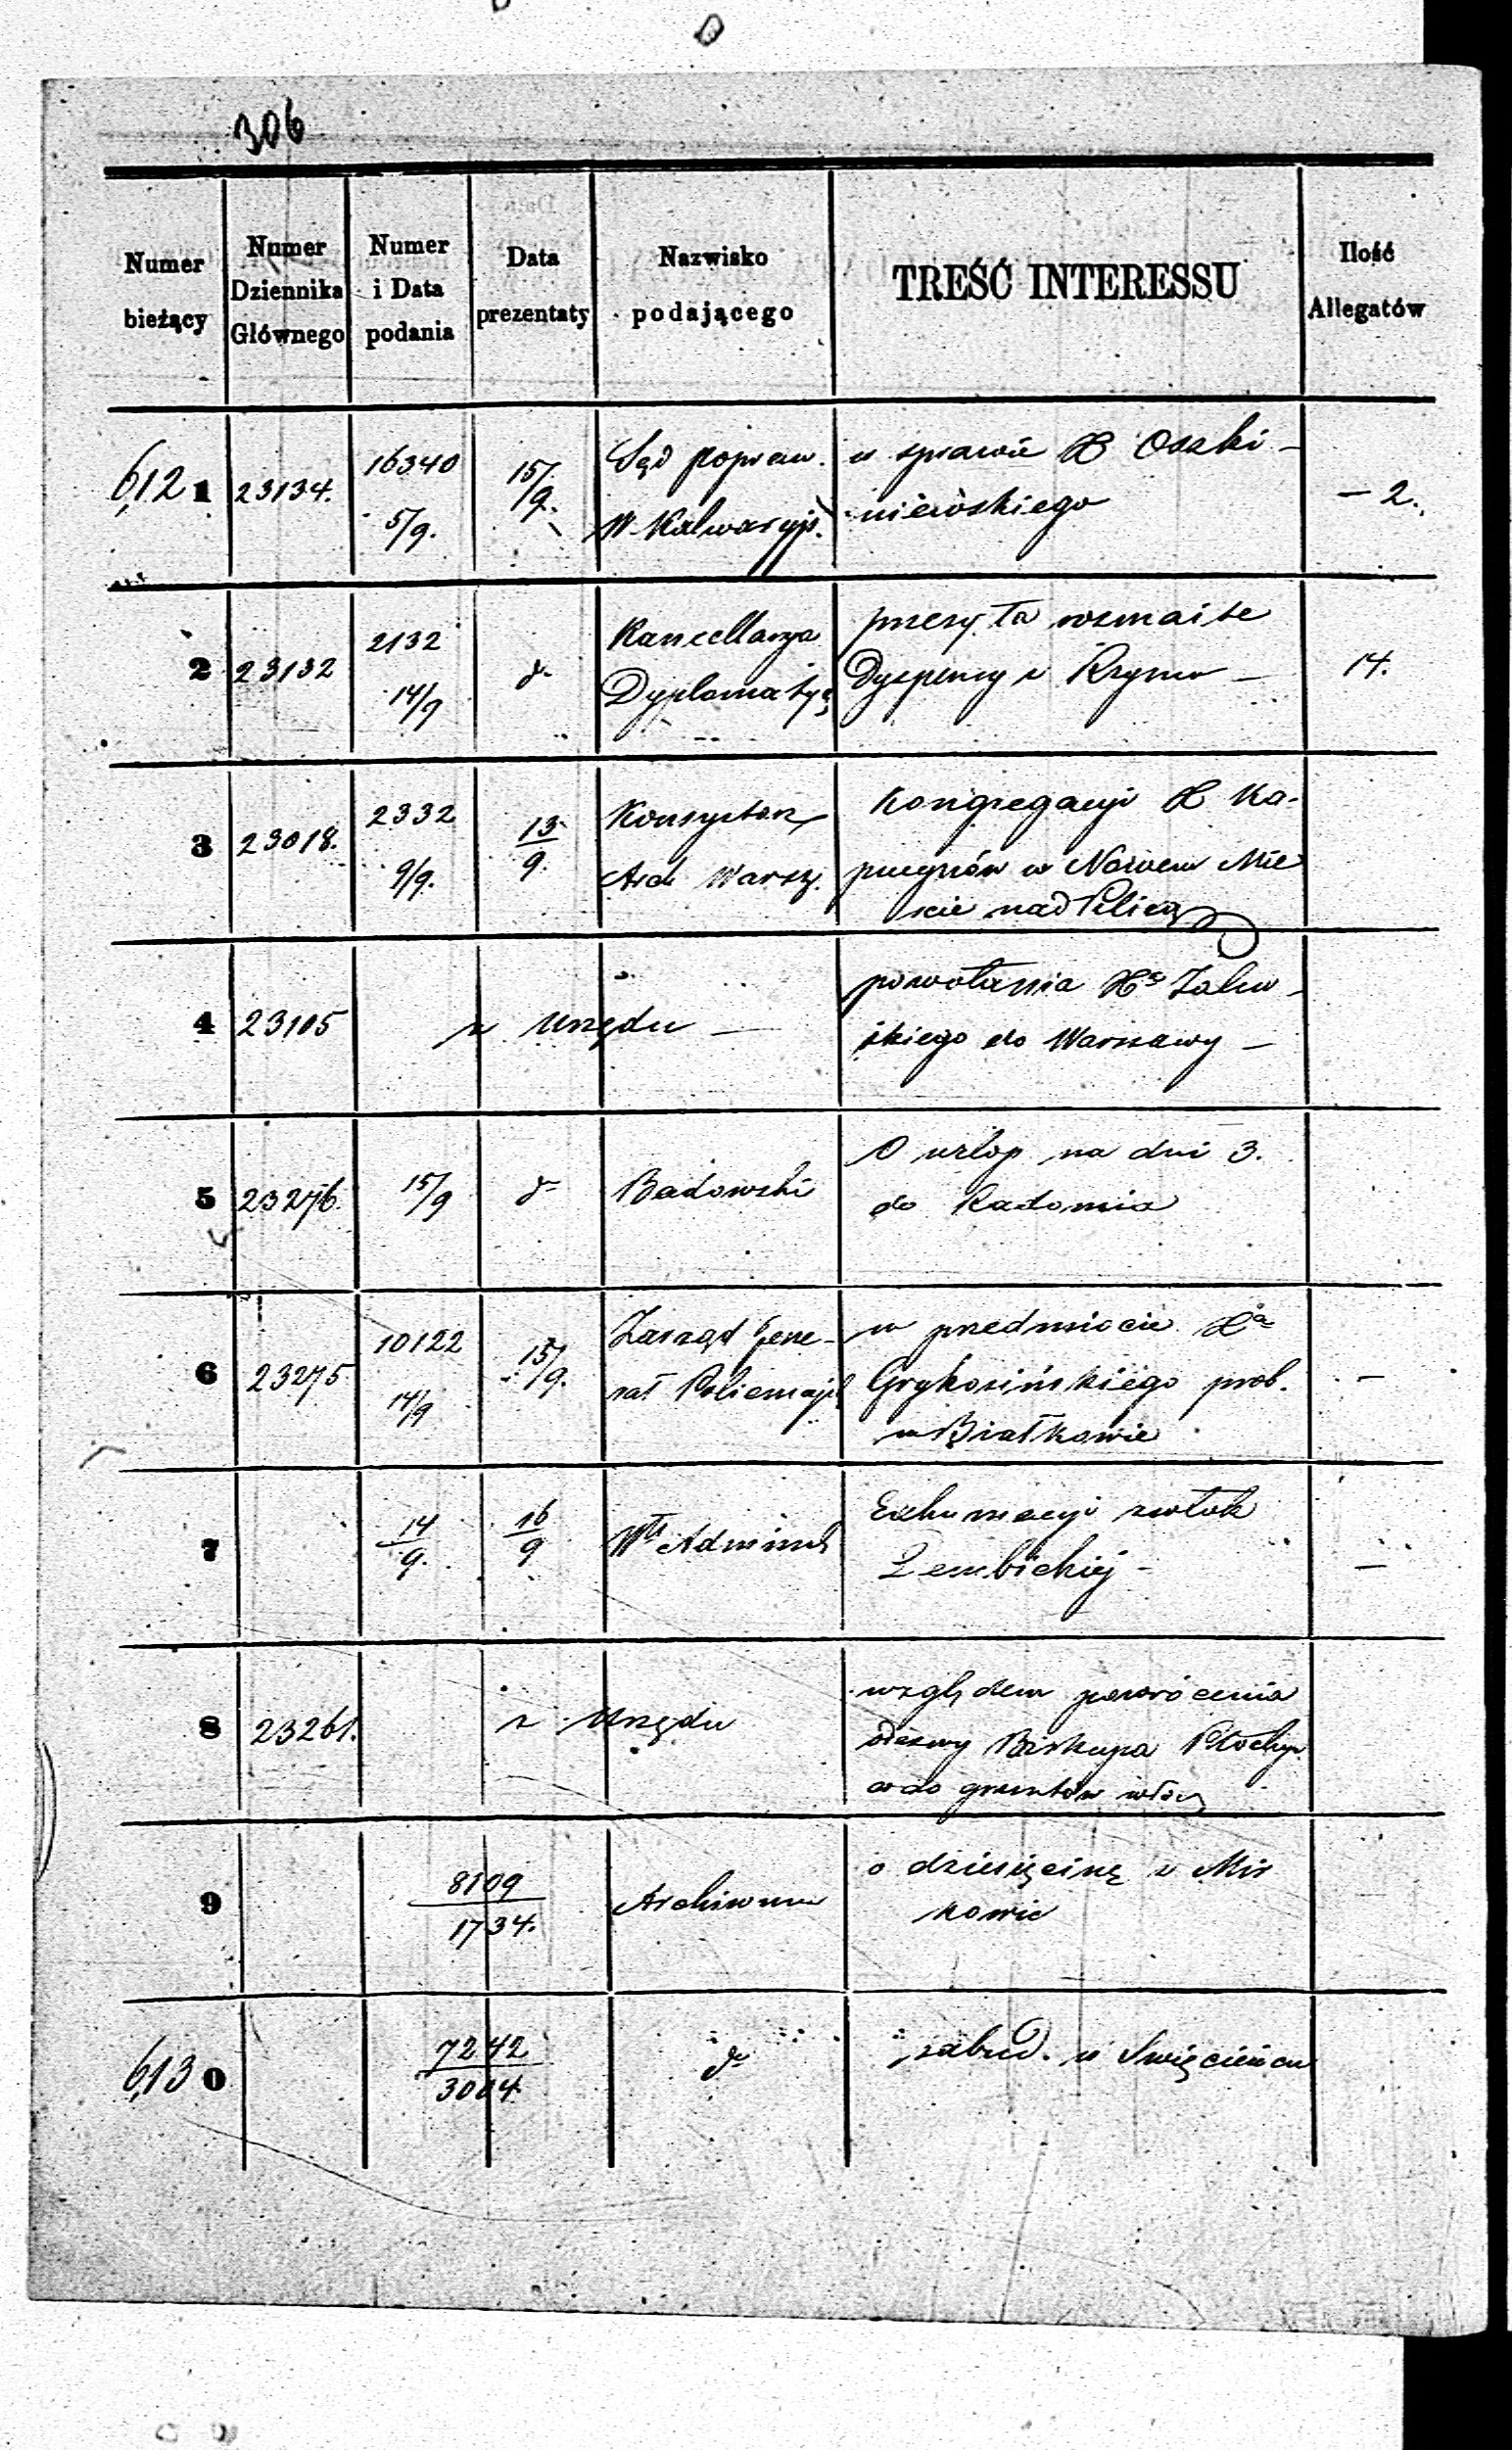 306
Numer bieżący
Numer Dziennika Głównego
Numer i Data podania
Data prezentaty
Nazwisko podającego
TREŚĆ INTERESSU
Ilość Allegatów
6,121 23134. 16340 5/9. 15/9. Sąd popraw. w sprawie X Oszki-
W Kalwaryjs. niewskiego — 2.
2 23132 2132 14/9 d° Kancellarya przesyła rozmaite
Dyplomatycz Dyspensy z Rzymu — 14.
3 23018. 2332 9/9. 13/9. Konsystorz Kongregacyi X Ka-
Arch Warsz. pucynów w Nowem Mie
scie nad Pilicą
4 23105 z Urzędu — powołania Xa Zalew-
skiego do Warszawy —
5 23276. 15/9 d° Badowski O urlop na dni 3.
do Radomia
6 23275 10122 14/9 15/9. Zarząd Gene- w przedmiocie Xa
rał Policmajs Grykosińskiego prob. —
w Białkowie
7 14/9. 16/9 Exhumacyi zwłok
Zembickiej — —
8 23261. z Urzędu względem powrócenia
odezwy Biskupa Płockiego
co do gruntów
9 8109/1734. Archiwum o dziesięcinę z Mir
kowic
6,130 7242/3004. d° zabud. w Święcieńcu